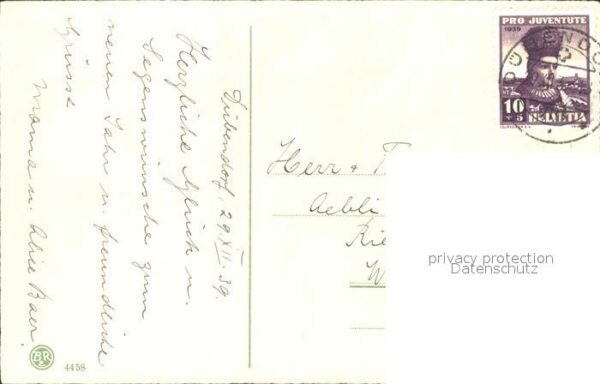 Dübendorf, 29. XII. 39.
Herzliche Glück u.
Segenswünsche zum
neuen Jahr u. freundliche
Grüsse
Mama u. Alice Baer.
Herr + F
Aebli
Rie
W
PRO JUVENTUTE
1939
10
+5
HELVETIA
DÜBENDO
privacy protection
Datenschutz
BR
4458